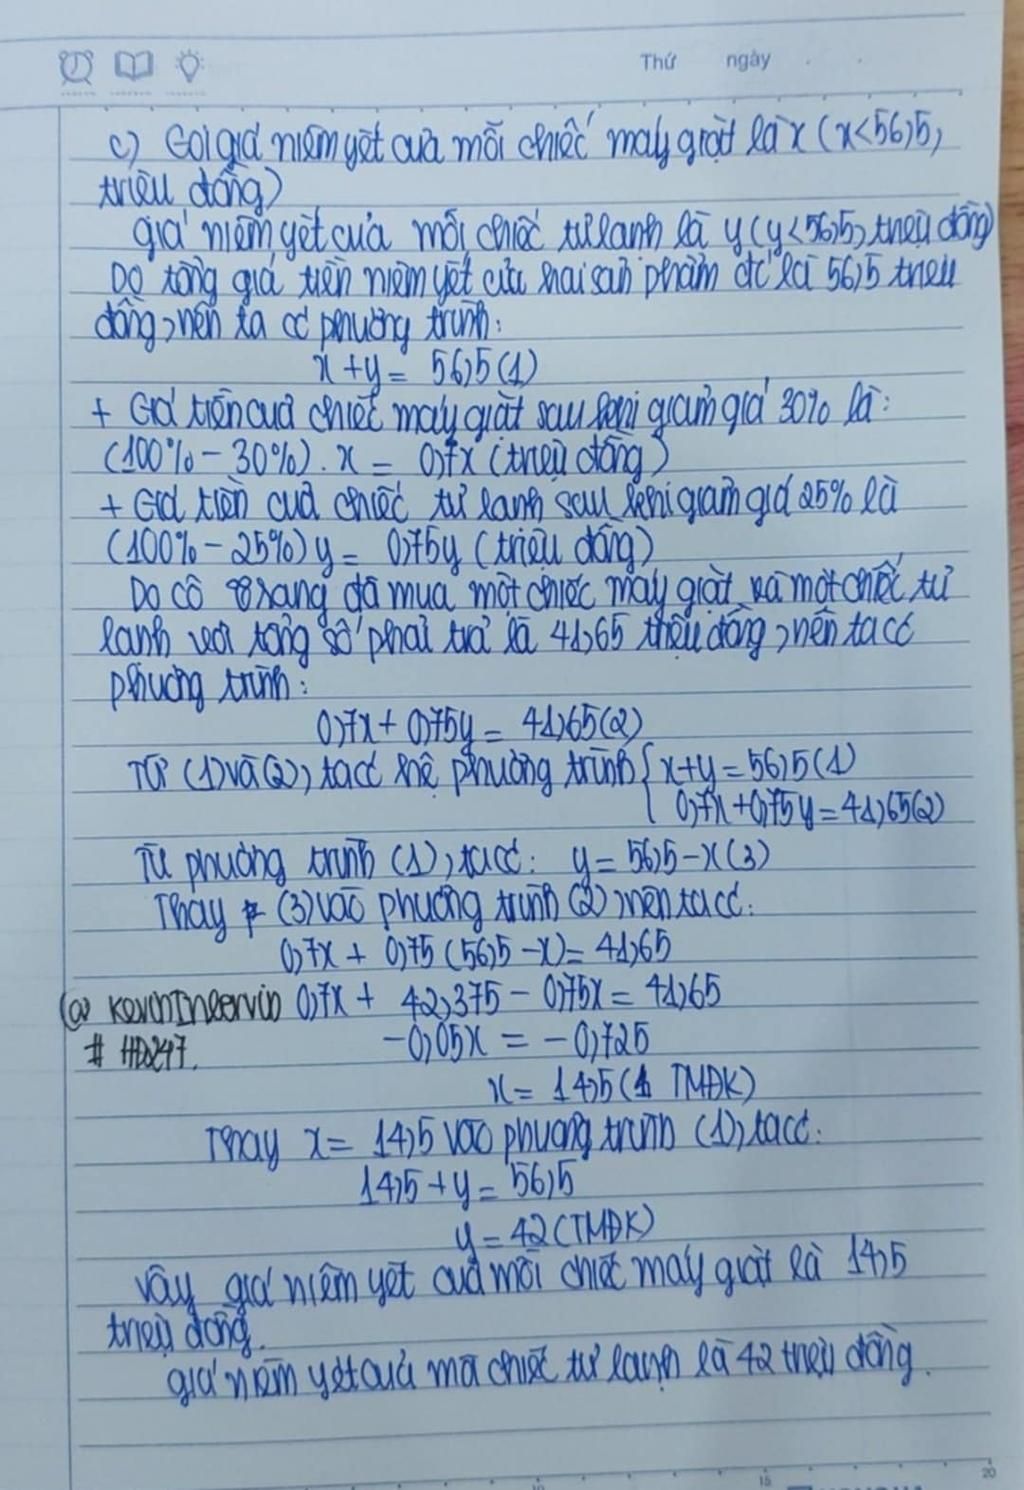 Thứ ngày
c) Gọi giá niêm yết của mỗi chiếc máy giặt là x (x<56,5,
triệu đồng)
giá niêm yết của mỗi chiếc tủ lạnh là y (y<56,5, triệu đồng)
Do tổng giá tiền niêm yết của hai sản phẩm đó là 56,5 triệu
đồng, nên ta có phương trình:
x + y = 56,5 (1)
+ Giá tiền của chiếc máy giặt sau khi giảm giá 30% là:
(100% - 30%) . x = 0,7x (triệu đồng)
+ Giá tiền của chiếc tủ lạnh sau khi giảm giá 25% là
(100% - 25%) y = 0,75y (triệu đồng)
Do cô đã mua một chiếc máy giặt và một chiếc tủ
lạnh với tổng số phải trả là 41,65 triệu đồng, nên ta có
phương trình:
0,7x + 0,75y = 41,65 (2)
Từ (1) và (2), ta có hệ phương trình { x + y = 56,5 (1)
0,7x + 0,75y = 41,65 (2)
Từ phương trình (1), ta có: y = 56,5 - x (3)
Thay (3) vào phương trình (2) nên ta có:
0,7x + 0,75 (56,5 - x) = 41,65
0,7x + 42,375 - 0,75x = 41,65
- 0,05x = - 0,725
# HD247.
x = 14,5 ( TMĐK)
Thay x = 14,5 vào phương trình (1), ta có:
14,5 + y = 56,5
y = 42 (TMĐK)
Vậy giá niêm yết của mỗi chiếc máy giặt là 14,5
triệu đồng.
giá niêm yết của mỗi chiếc tủ lạnh là 42 triệu đồng.
10 15 20